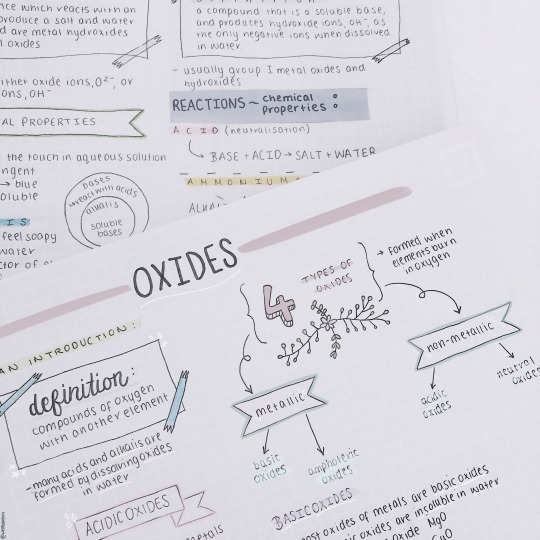 nce which reacts with an
produce a salt and water
d are metal hydroxides
l oxides
either oxide ions, O²⁻, or
ions, OH⁻
AL PROPERTIES:
the touch in aqueous solution
→ blue
oluble
bases
react with acids
alkalis
soluble
bases
IS
feel soapy
water
a compound that is a soluble base,
and produces hydroxide ions, OH⁻, as
the only negative ions when dissolved
in water
- usually group I metal oxides and
hydroxides
REACTIONS ~ chemical
properties:
ACID (neutralisation)
BASE + ACID → SALT + WATER
AMMONIUM
OXIDES
AN INTRODUCTION:
definition:
compounds of oxygen
with another element
- many acids and alkalis are
formed by dissolving oxides
in water
ACIDIC OXIDES
4
TYPES OF
OXIDES
→ formed when
elements burn
in oxygen
metallic
basic
oxides
amphoteric
oxides
non-metallic
acidic
oxides
neutral
oxides
BASIC OXIDES
most oxides of metals are basic oxides
oxides are insoluble in water
oxide